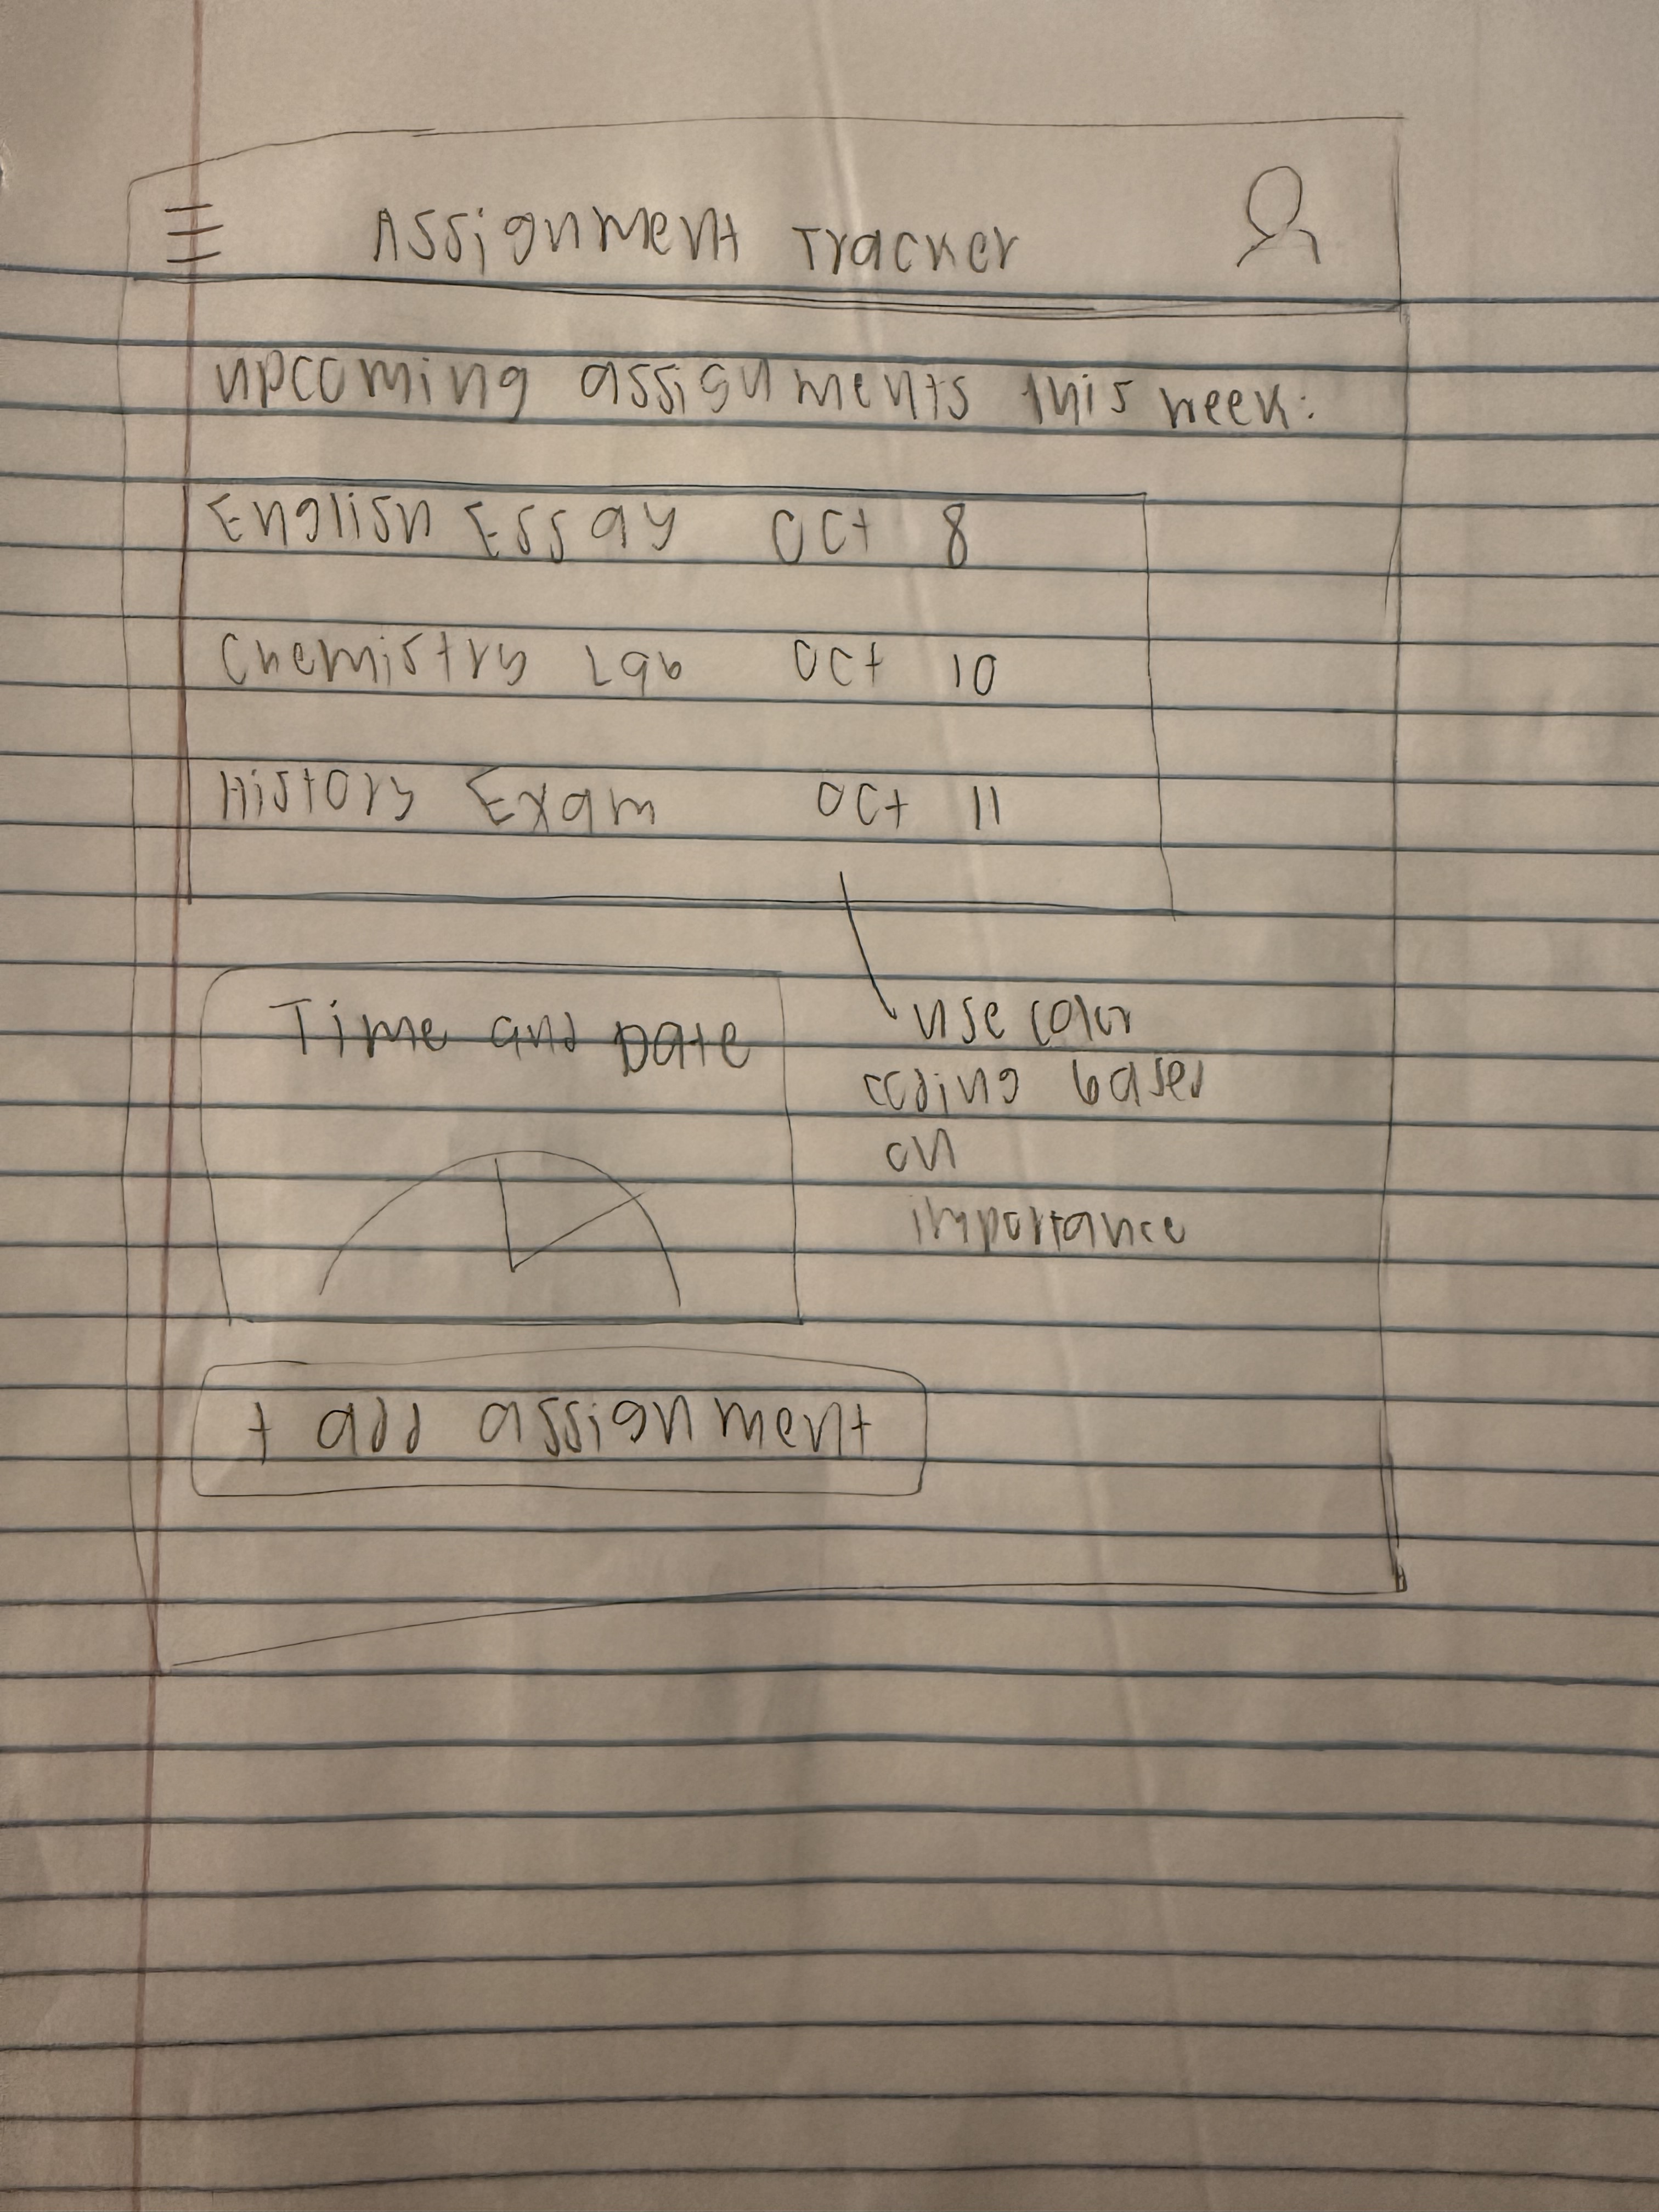 Assignment Tracker
upcoming assignments this week:
English Essay Oct 8
Chemistry Lab Oct 10
History Exam Oct 11
Time and Date
use color
coding based
on
importance
+ add assignment